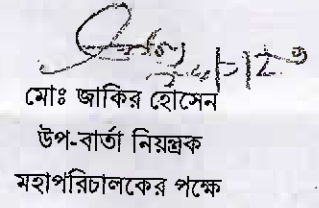 মোঃ জাকির হোসেন
উপ-বার্তা নিয়ন্ত্রক
মহাপরিচালকের পক্ষে